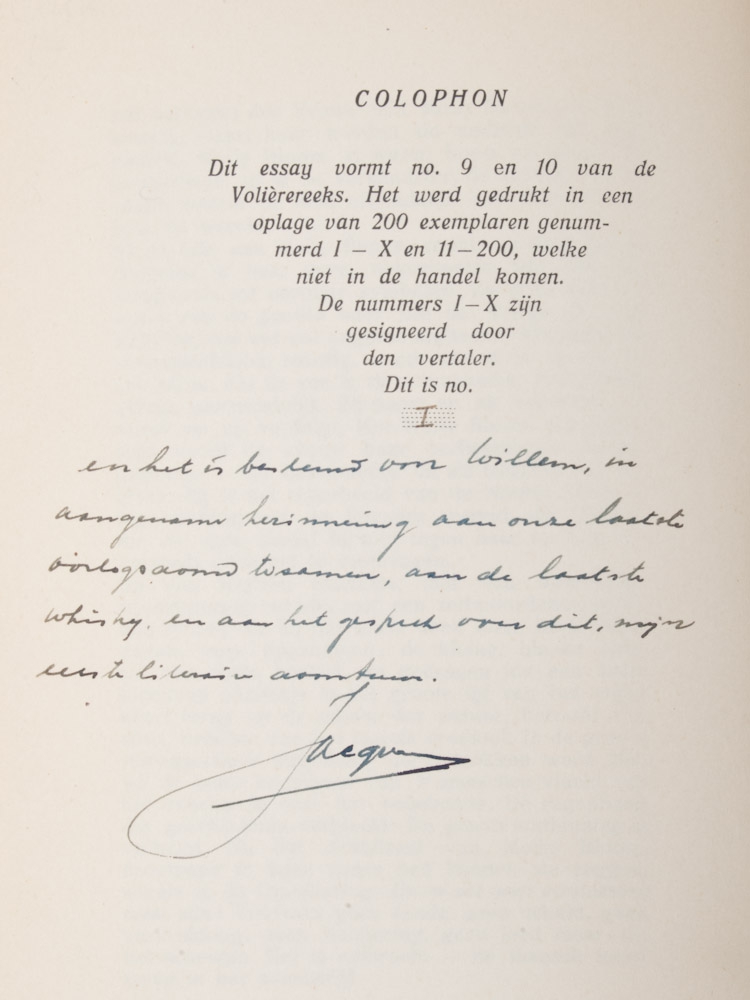 COLOPHON
Dit essay vormt no. 9 en 10 van de
Volièrereeks. Het werd gedrukt in een
oplage van 200 exemplaren genum-
merd I — X en 11—200, welke
niet in de handel komen.
De nummers I—X zijn
gesigneerd door
den vertaler.
Dit is no.
I
en het is bestemd voor Willem, in
aangename herinnering aan onze laatste
oorlogsavond tesamen, aan de laatste
whisky, en aan het gesprek over dit, mijn
eerste literaire avontuur.
Jacques